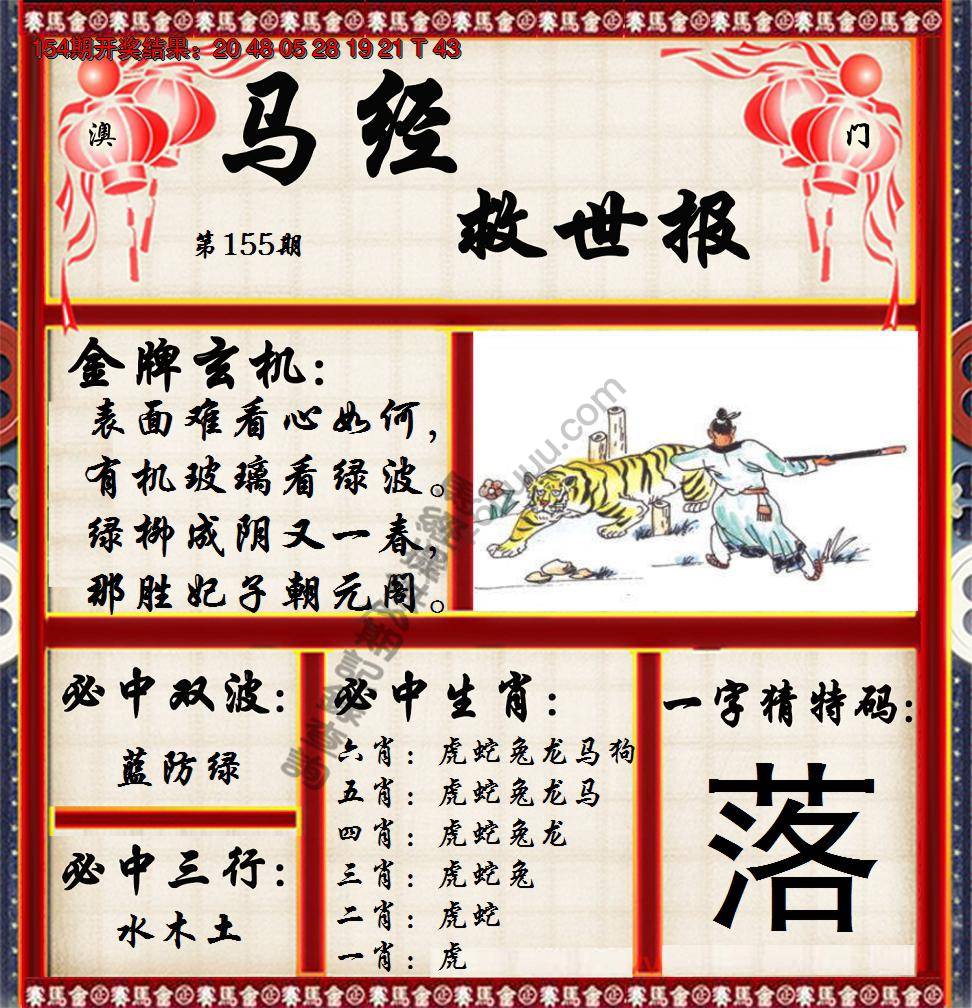 154期开奖结果：20 48 05 28 19 21 T 43
澳
门
马经
救世报
第155期
金牌玄机：
表面难看心如何，
有机玻璃看绿波。
绿柳成阴又一春，
那胜妃子朝元阁。
必中双波：
蓝防绿
必中三行：
水木土
必中生肖：
六肖：虎蛇兔龙马狗
五肖：虎蛇兔龙马
四肖：虎蛇兔龙
三肖：虎蛇兔
二肖：虎蛇
一肖：虎
一字猜特码：
落